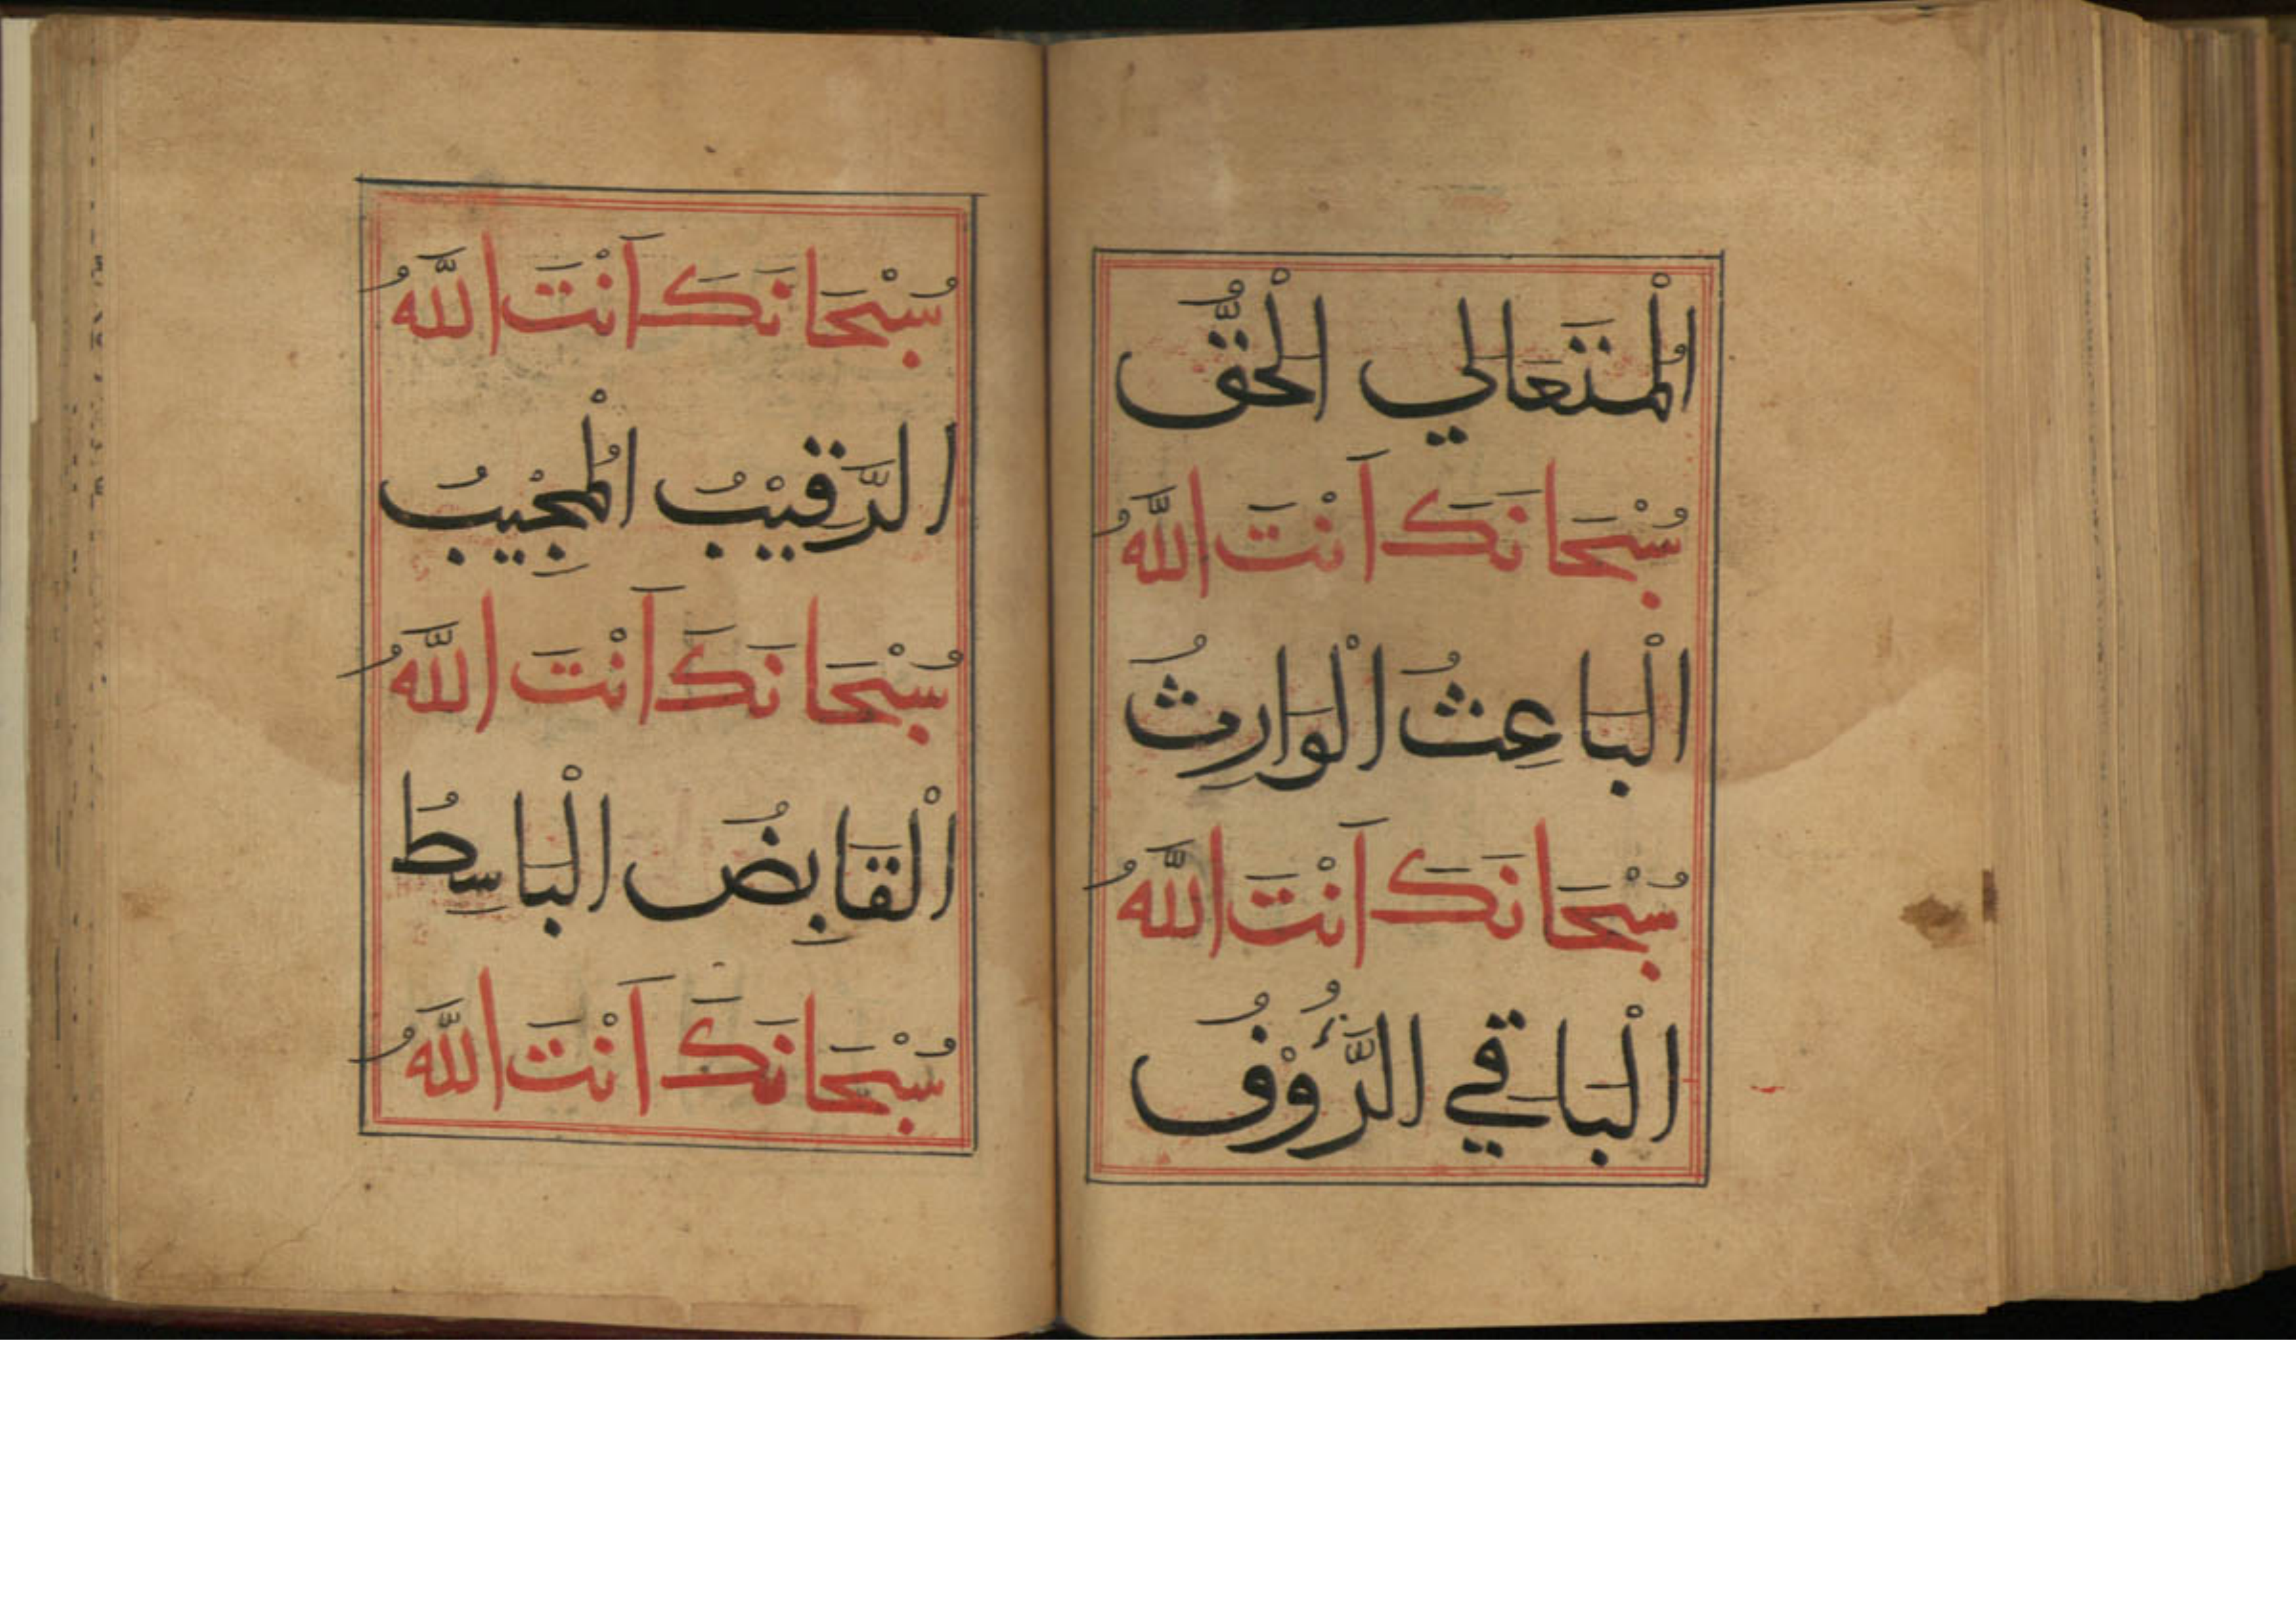 الْمُتَعَالي الْحَقُّ
سُبْحَانَكَ اَنْتَ اللَّهُ
الْبَاعِثُ الْوَارِثُ
سُبْحَانَكَ اَنْتَ اللَّهُ
الْبَاقي الرَّؤُوْفُ
سُبْحَانَكَ اَنْتَ اللَّهُ
الرَّقيْبُ الْمُجِيْبُ
سُبْحَانَكَ اَنْتَ اللَّهُ
الْقَابِضُ الْبَاسِطُ
سُبْحَانَكَ اَنْتَ اللَّهُ